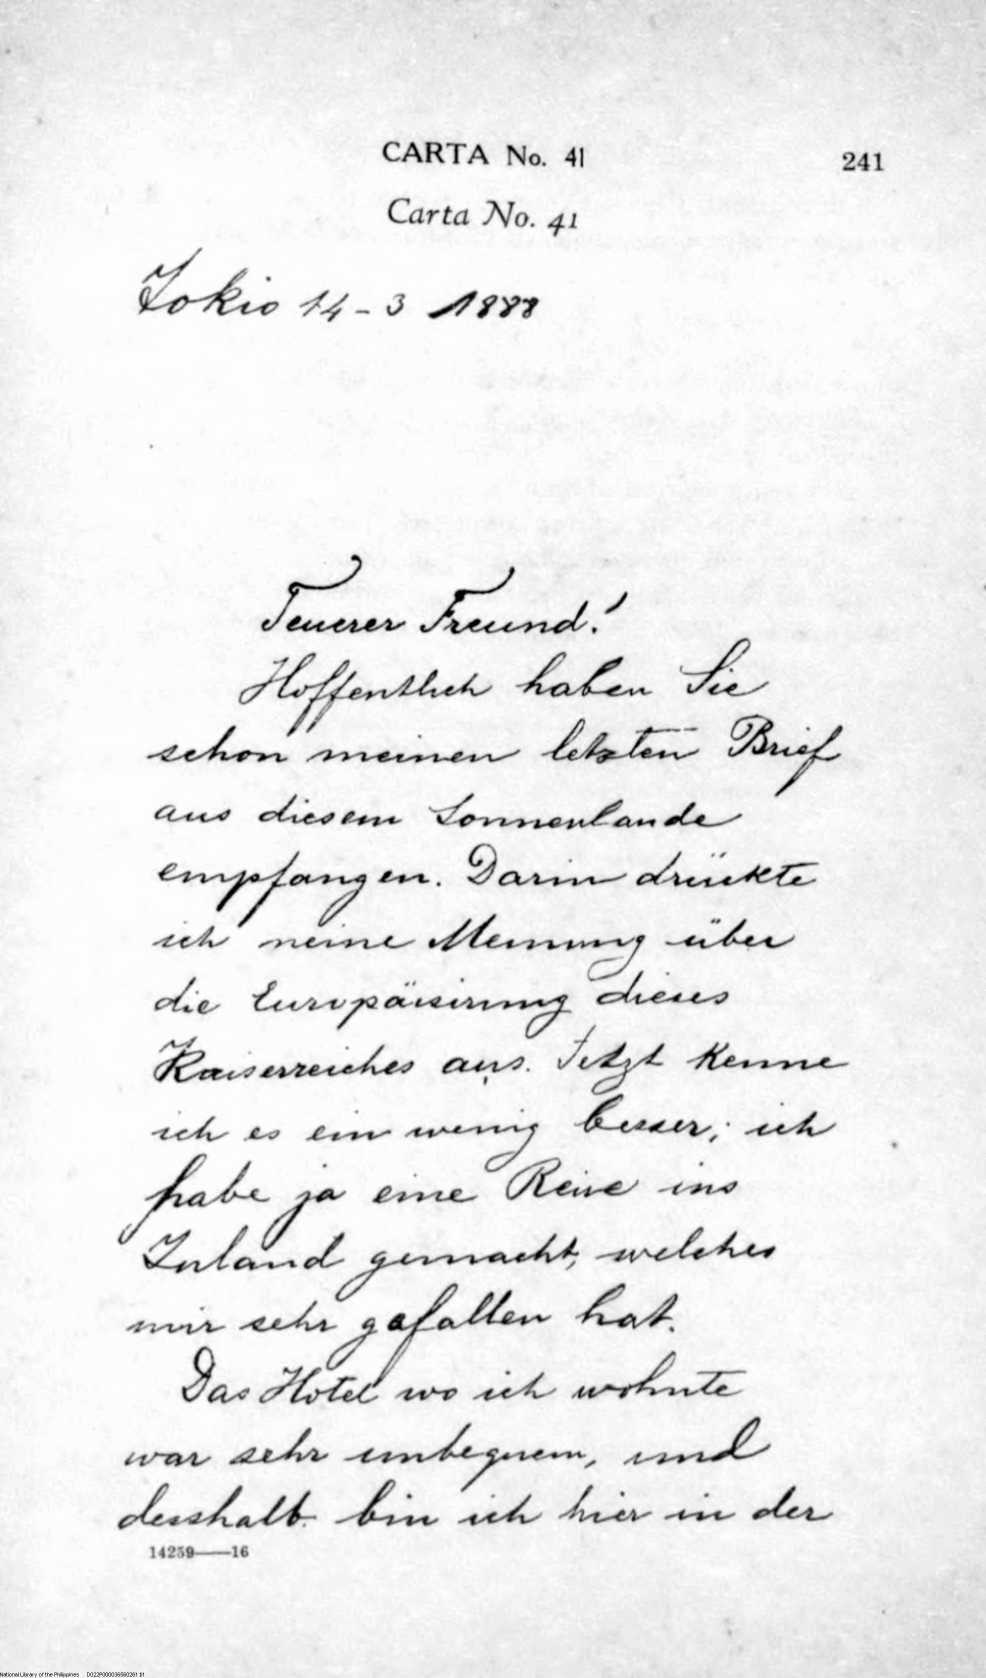 CARTA No. 41
241
Carta No. 41
Tokio 14-3 1888
Teuerer Freund!
Hoffentlich haben Sie
schon meinen letzten Brief
aus diesem Sonnenlande
empfangen. Darin drückte
ich meine Meinung über
die Europäisirung dieses
Kaiserreiches aus. Jetzt kenne
ich es ein wenig besser; ich
habe ja eine Reise ins
Inland gemacht, welches
mir sehr gefallen hat.
Das Hotel wo ich wohnte
war sehr unbequem, und
desshalb bin ich hier in der
14259——16
National Library of the Philippines